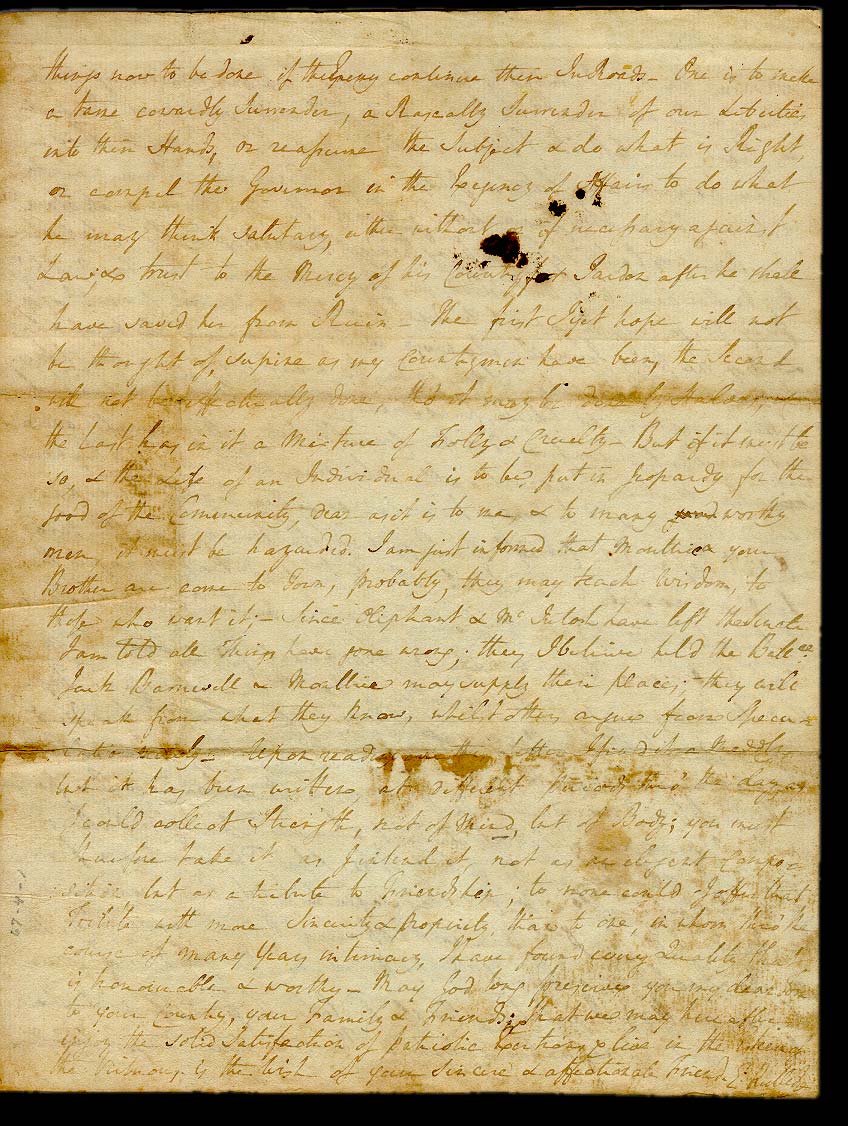 things now to be done if the Enemy continue their InRoads - One is to make
a tame cowardly Surrender, a Rascally Surrender of our Liberties
into their Hands, or reassume the Subject & do what is Right,
or compel the Governor in the Exigency of Affairs to do what
he may think salutary, either without or if necessary against
Law, & trust to the Mercy of his Country for Pardon after he shall
have saved her from Ruin - The first I yet hope will not
be thought of, supine as my Countrymen have been, the Second
will not be effectually done, tho' it may be done by
the Last has in it a Mixture of Folly & Cruelty - But if it must be
so, & the Life of an Individual is to be put in Jeopardy for the
good of the Community, dear as it is to me, & to many worthy
men, it must be hazarded. I am just informed that Moultrie & your
Brother are come to Town, probably, they may teach Wisdom, to
those who want it; - Since Oliphant & McIntosh have left the Senate
I am told all Things have gone wrong; they I believe held the Ballce.
Jack Barnwell & Moultrie may supply their places; they will
speak from what they know, whilst others argue from Specu=
lation merely - Upon reading over this letter I find it a Medly
but it has been written, at different Periods thro' the day as
I could collect Strength, not of Mind, but of Body; you must
therefore take it as I intend it, not as an elegant Compo=
sition but as a tribute to Friendship; to none could I offer that
Tribute with more Sincerity & propriety, than to one, in whom thro' the
course of many Years intimacy, I have found every Quality that
is honourable & worthy - May God long preserve you my dear
to your Country, your Family & Friends; that we may hereafter
enjoy the Solid Satisfaction of patriotic Exertions & live in the
the is the Wish of your Sincere & affectionate Friend E. Rutledge
67-4-1